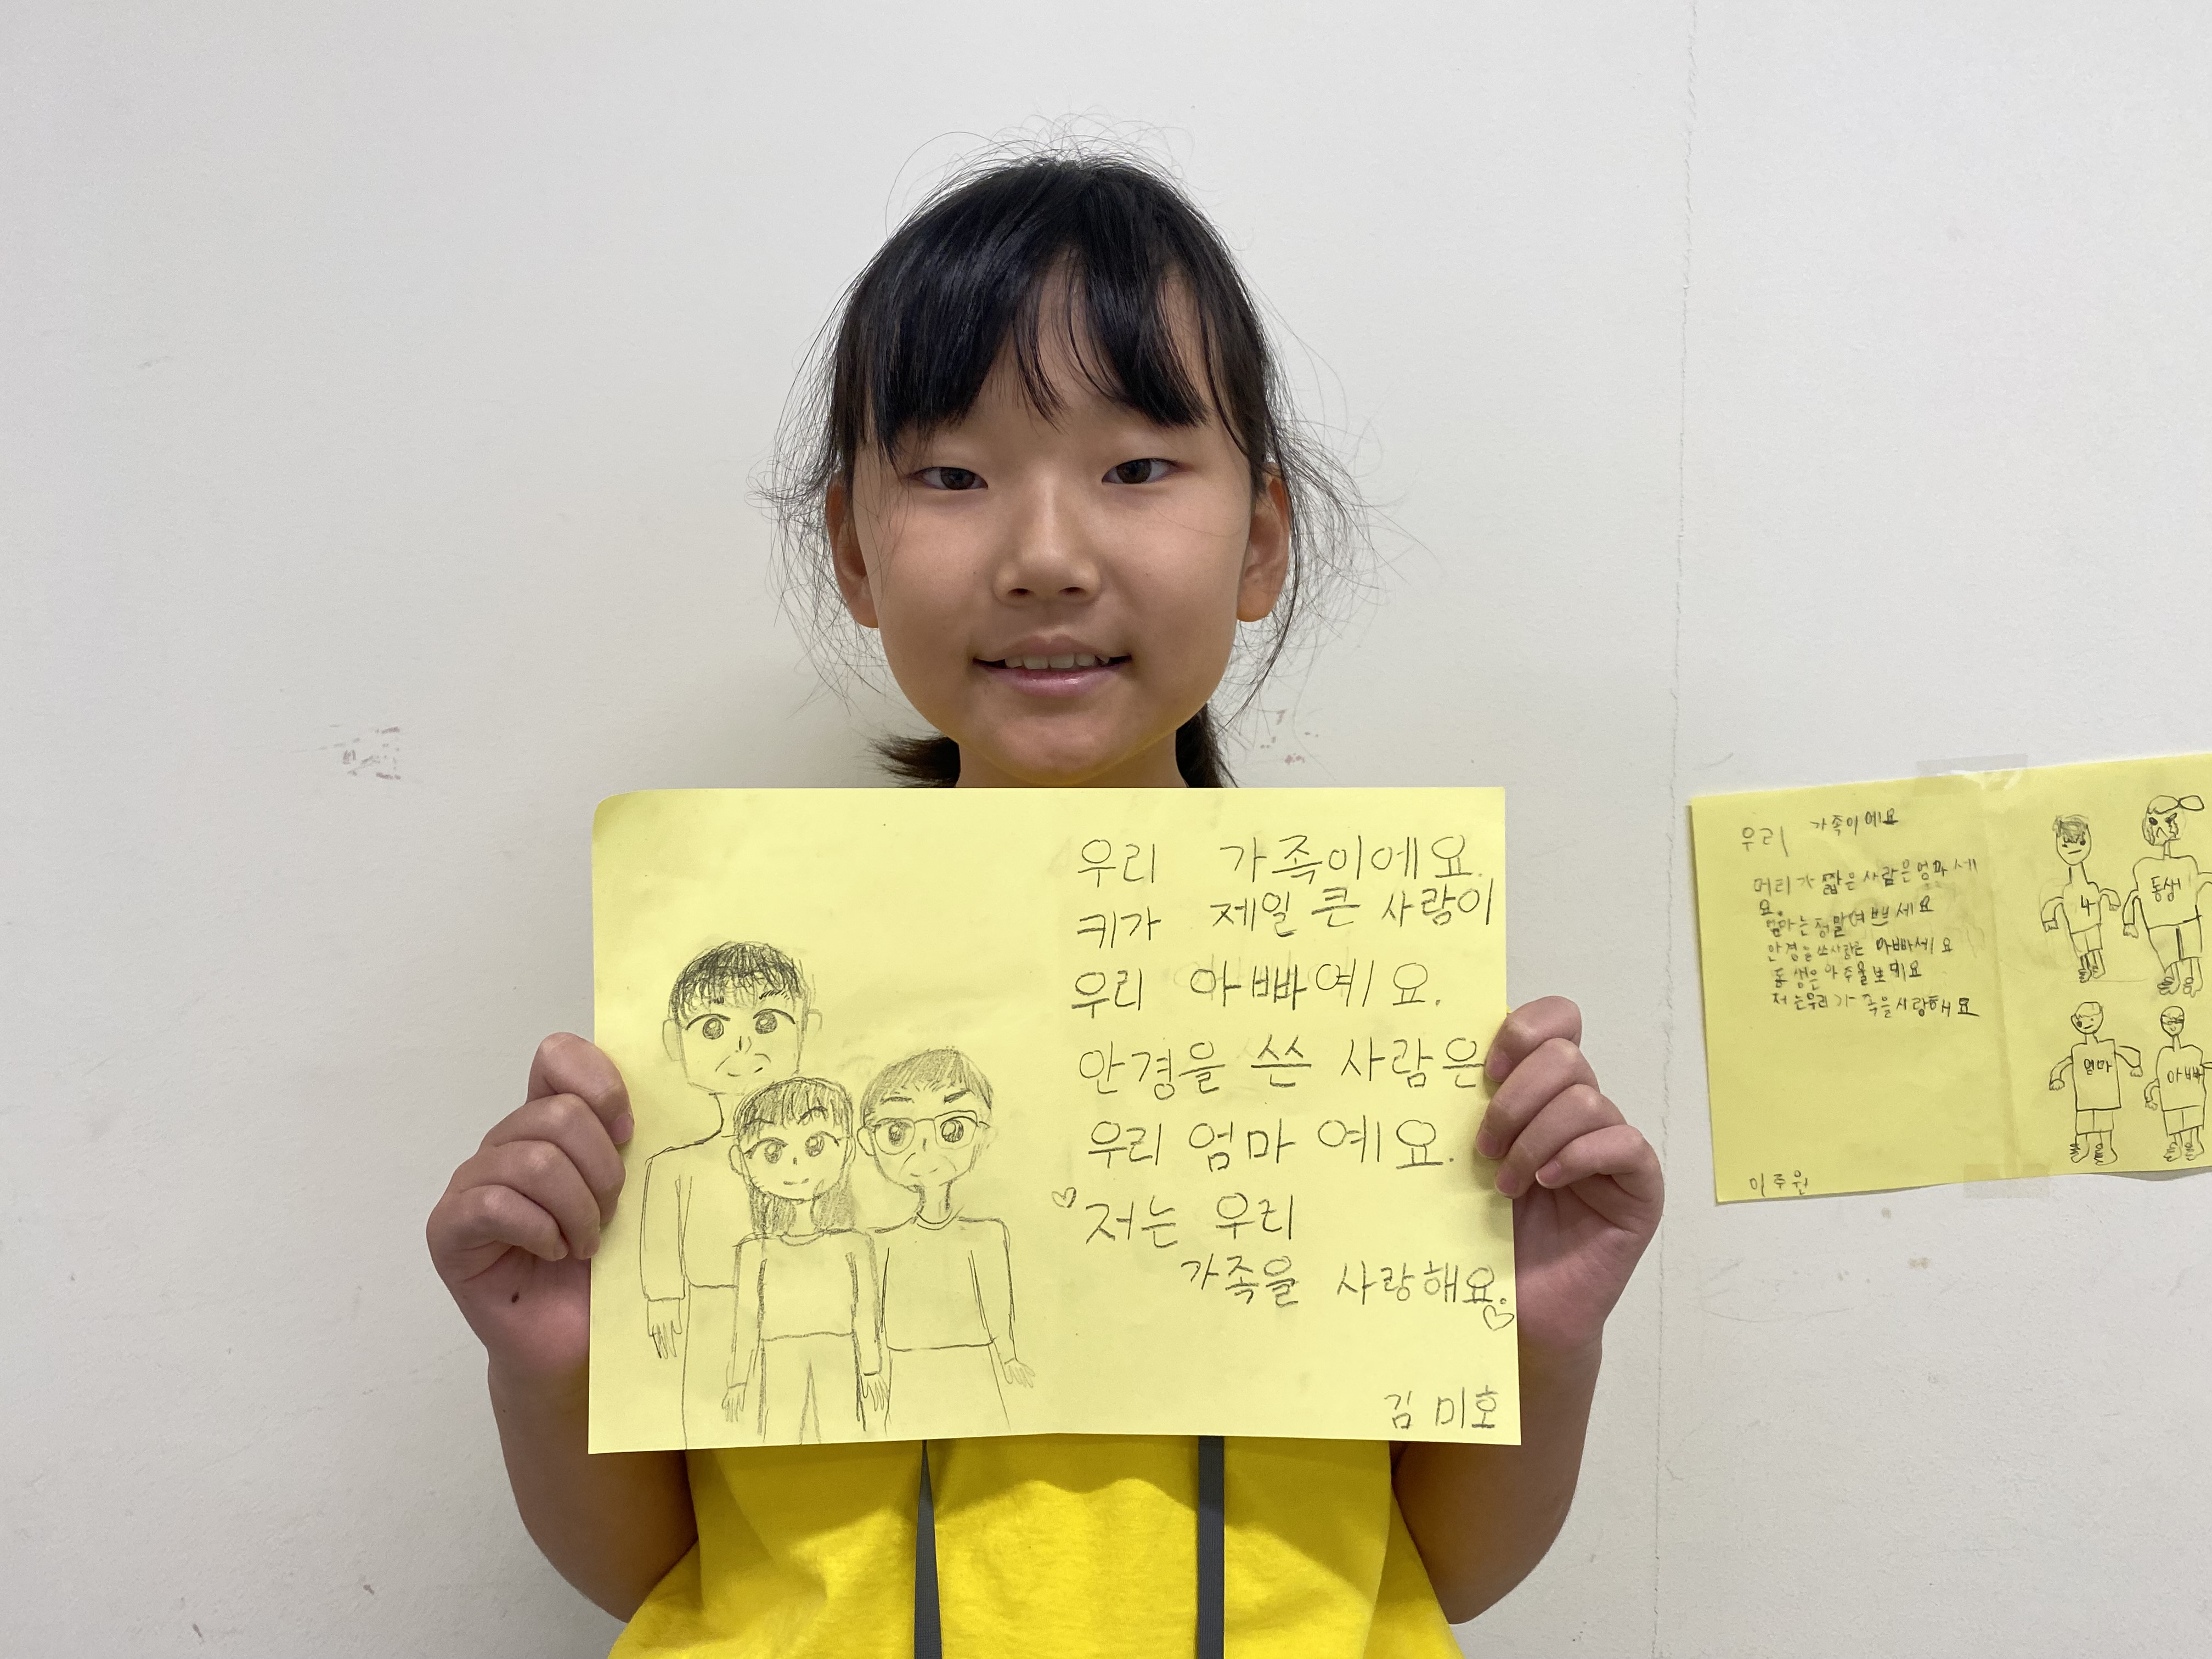 우리 가족이에요.
키가 제일 큰 사람이
우리 아빠예요.
안경을 쓴 사람은
우리 엄마 예요.
저는 우리
가족을 사랑해요.
김 미호
우리 가족이에요
머리가 짧은 사람은 엄마세
요.
엄마는 정말 예쁘세요
안경을 쓰사람은 아빠세요
동생은 아주 울보예요
저는 우리 가족을 사랑해요
이주원
동생
엄마
아빠